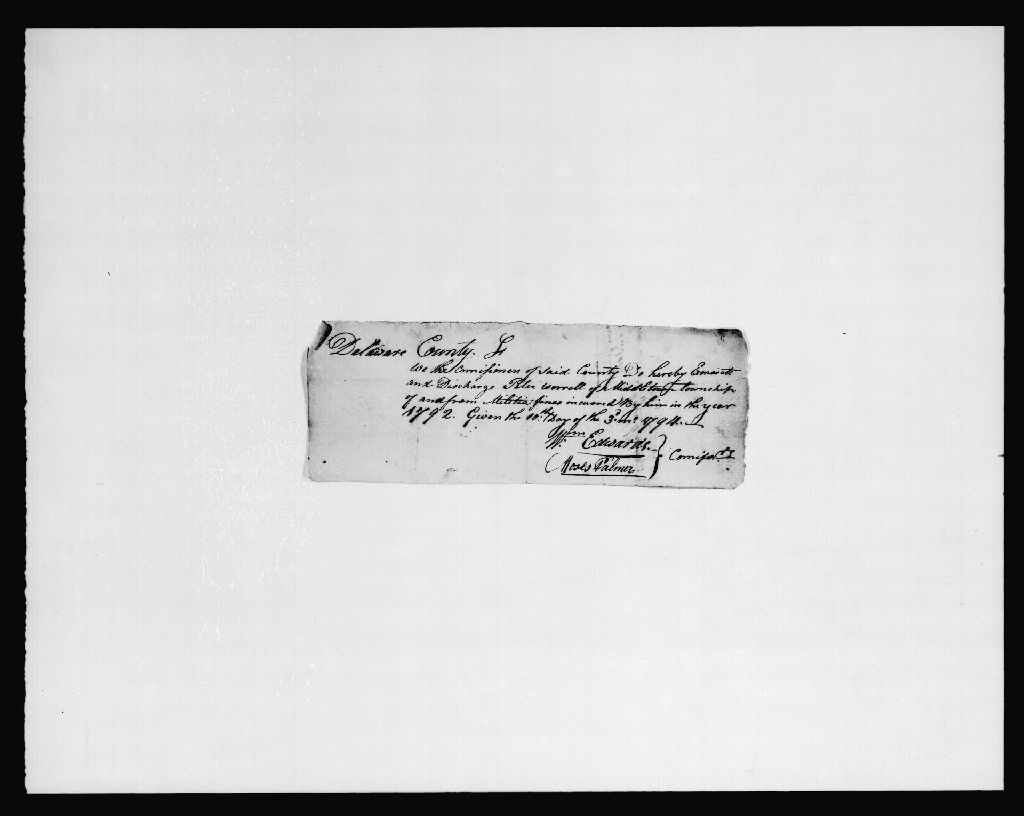 Delaware County. Ss
We the Comissioners of said County Do hereby Exonerate
and Discharge Peter Worrell of Middletown township
of and from Militia fines incurred by him in the year
1792. Given the 10th Day of the 3d mo 1794.
Wm Edwards
Moses Palmer } Comissrs